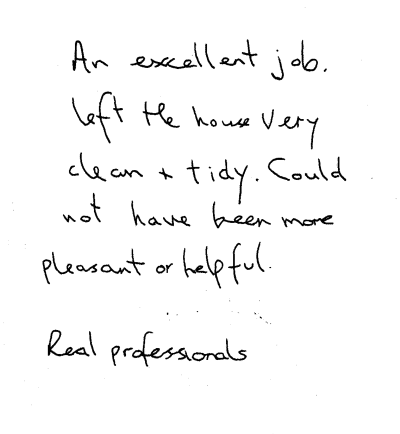 An excellent job.
left the house very
clean + tidy. Could
not have been more
pleasant or helpful.
Real professionals